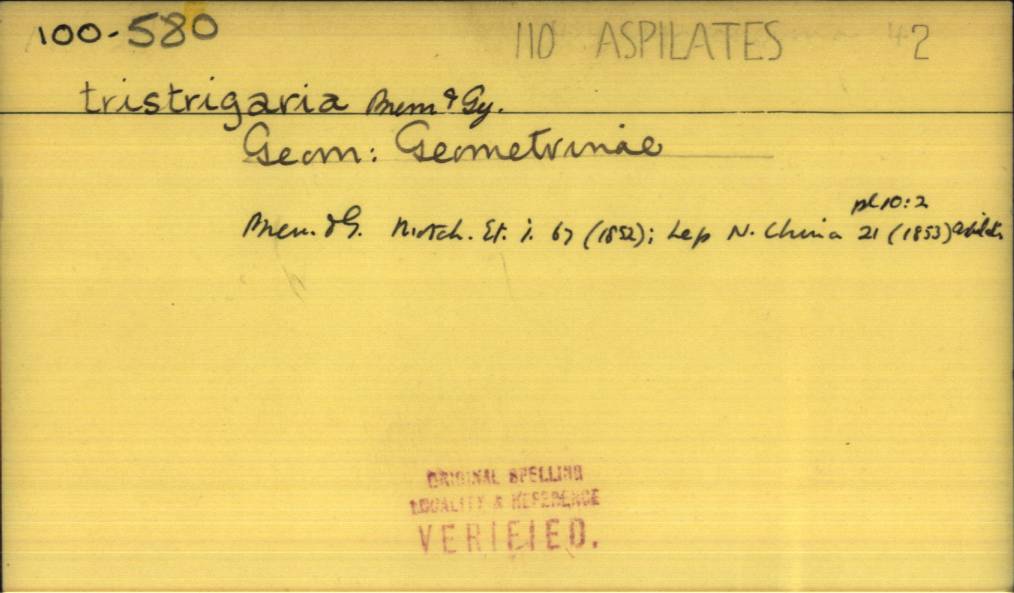 100-580 110 ASPILATES 42
tristrigaria Brem & Gy.
Geom: Geometrinae
pl 10:2
Brem. & G. Motsch. Et. i. 67 (1852); Lep N. China 21 (1853) Aspilates
ORIGINAL SPELLING
LOCALITY & REFERENCE
VERIFIED.